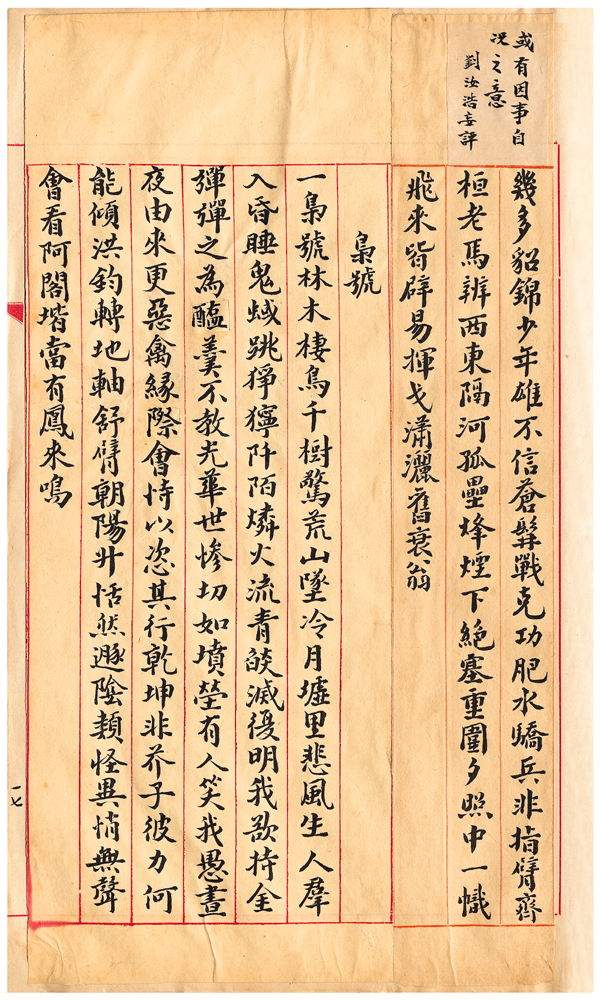 或有因事自
况之意
劉汝浩妄評
幾多貂錦少年雄不信蒼髯戰克功肥水驕兵非指臂齊
桓老馬辨西東隔河孤壘烽煙下絕塞重圍夕照中一幟
飛來皆辟易揮戈瀟灑舊衰翁
梟號
一梟號林木棲鳥千樹驚荒山墜冷月墟里悲風生人羣
入昏睡鬼蜮跳猙獰阡陌燐火流青燄滅復明我欲持金
彈彈之為醢羹不教光華世慘切如墳塋有人笑我愚晝
夜由來更惡禽緣際會恃以恣其行乾坤非芥子彼力何
能傾洪鈞轉地軸舒臂朝陽升恬然遯陰類怪異悄無聲
會看阿閣堦當有鳳來鳴
一七